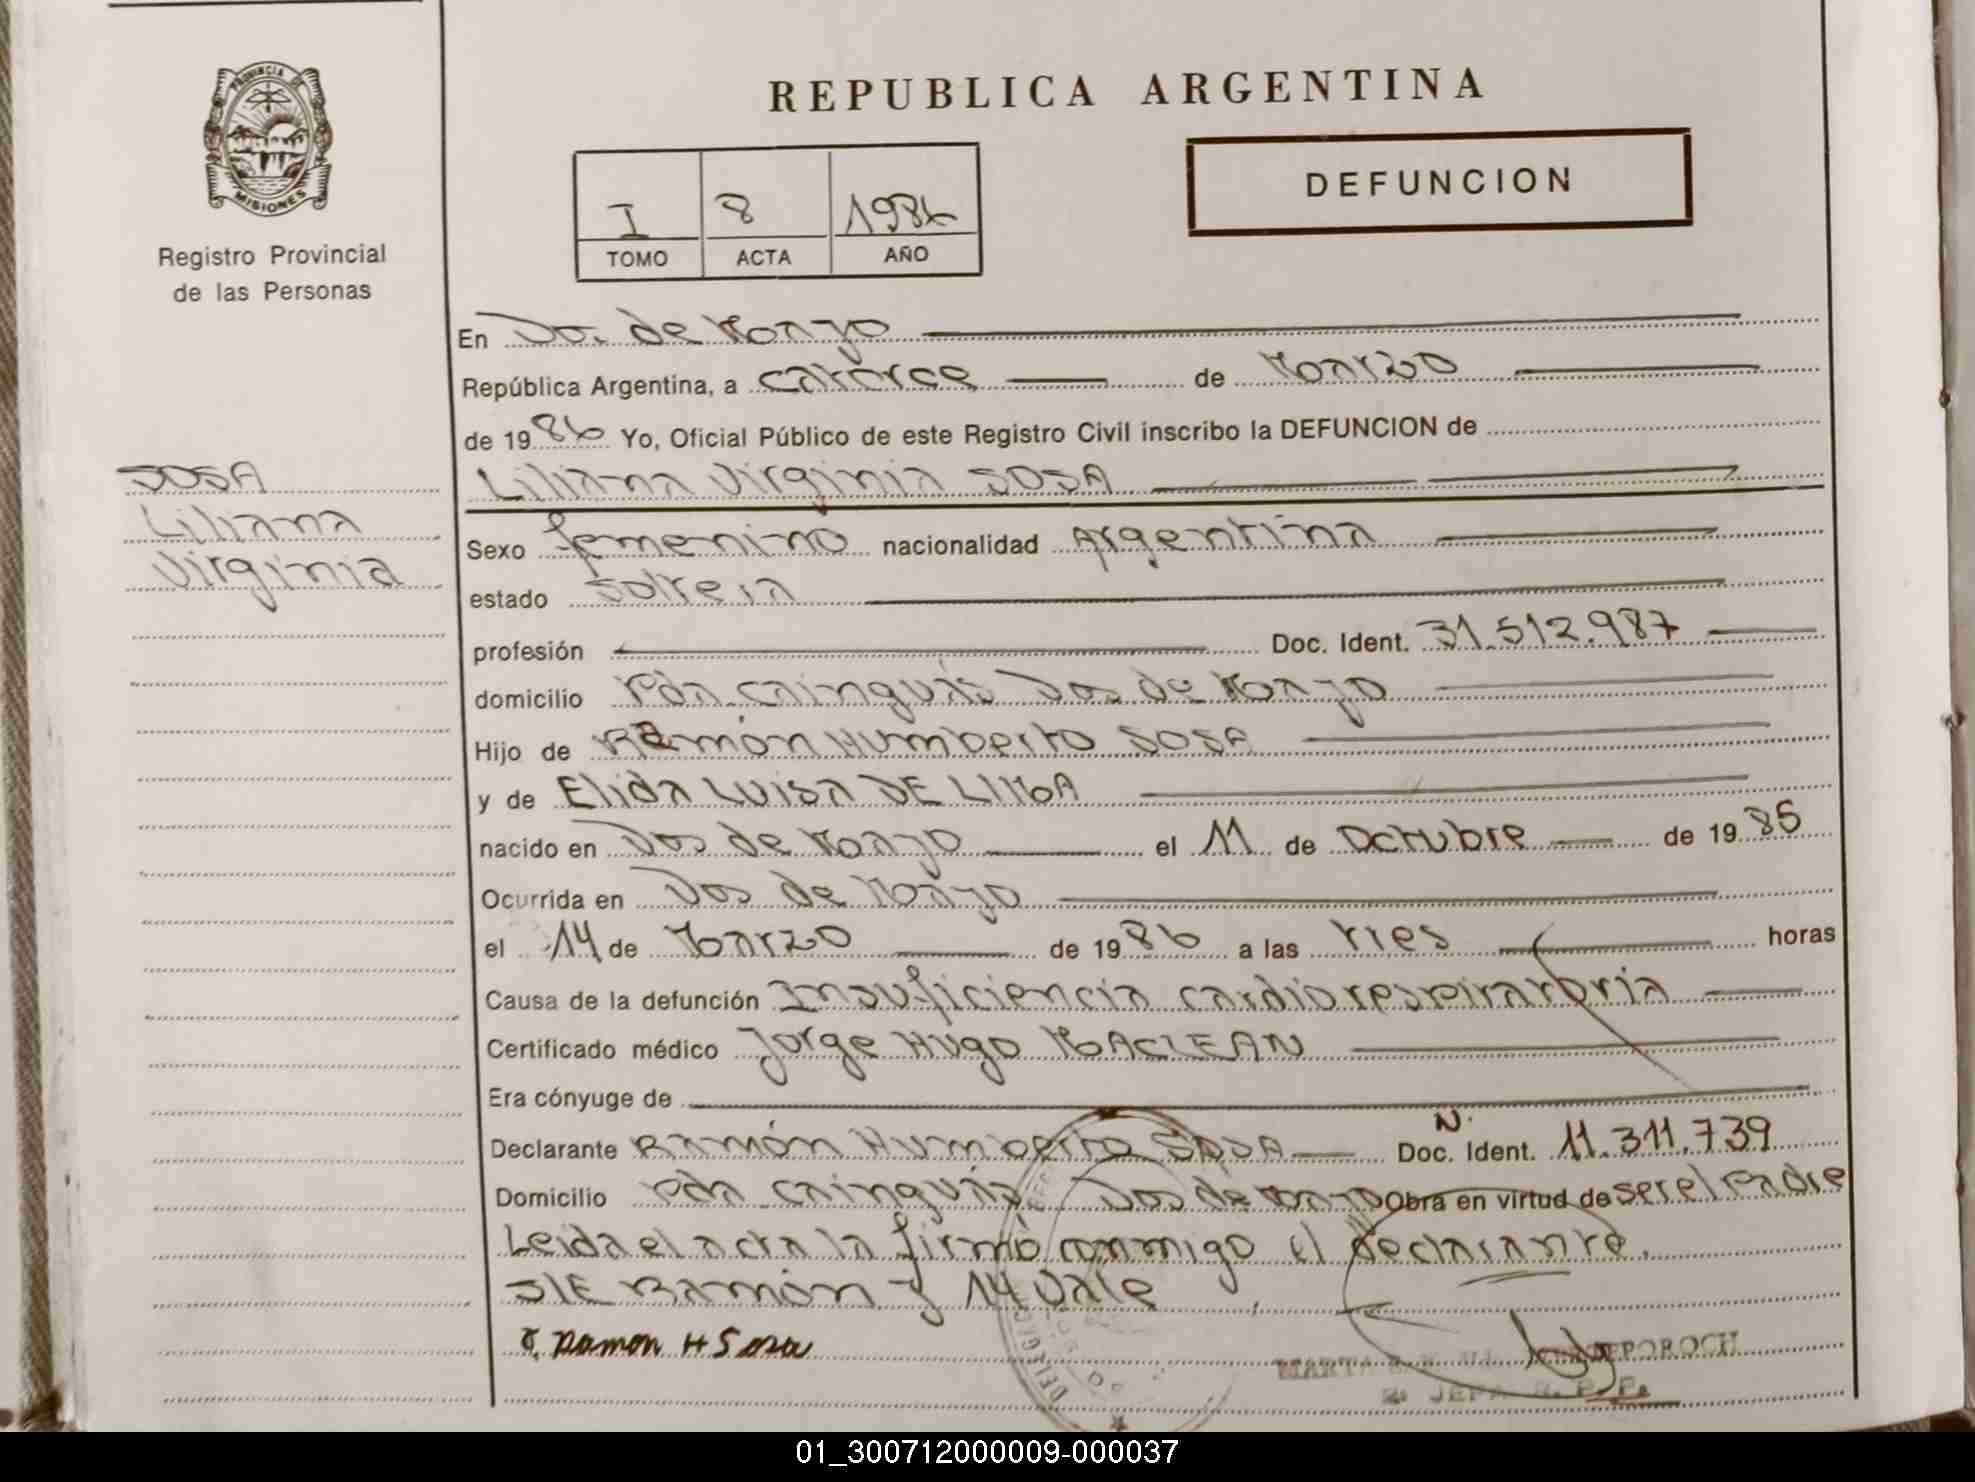 PROVINCIA DE
MISIONES
Registro Provincial
de las Personas
SOSA
Liliana
Virginia
REPUBLICA ARGENTINA
I 8 1986
TOMO ACTA AÑO
DEFUNCION
En Dos de Mayo
República Argentina, a catorce de Marzo
de 1986 Yo, Oficial Público de este Registro Civil inscribo la DEFUNCION de
Liliana Virginia SOSA
Sexo femenino nacionalidad Argentina
estado soltera
profesión Doc. Ident. 31.512.987
domicilio Pda. Cainguás Dos de Mayo
Hijo de Ramón Humberto SOSA
y de Elida Luisa DE LIMA
nacido en Dos de Mayo el 11 de Octubre de 1985
Ocurrida en Dos de Mayo
el 14 de Marzo de 1986 a las tres horas
Causa de la defunción Insuficiencia cardiorespiratoria
Certificado médico Jorge Hugo MACLEAN
Era cónyuge de
Declarante Ramón Humberto SOSA Doc. N. Ident. 11.311.739
Domicilio Pda. Cainguás Dos de Mayo Obra en virtud de ser el Padre
Leida el acta la firmó conmigo el declarante.
S/E Ramón y 14 Vale
Ramon H Sosa
MARTA POROCH
JEFA R. P. P.
01_300712000009-000037